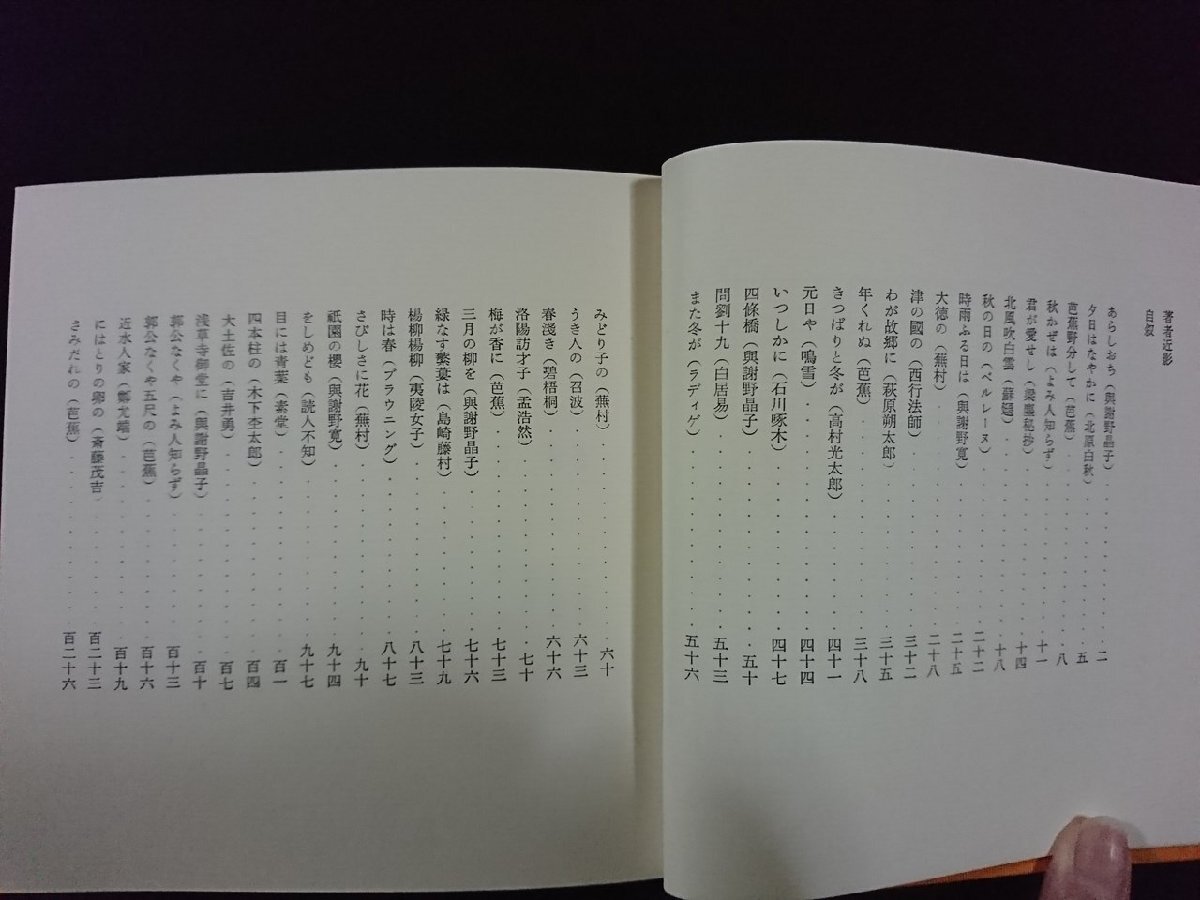 著者近影
自叙
あらしおち（與謝野晶子）・・・・・・・・二
夕日はなやかに（北原白秋）・・・・・・・五
芭蕉野分して（芭蕉）・・・・・・・・八
秋かぜは（よみ人知らず）・・・・・・・十一
君が愛せし（梁塵秘抄）・・・・・・・十四
北風吹白雲（蘇頲）・・・・・・・・十八
秋の日の（ベルレーヌ）・・・・・・・二十二
時雨ふる日は（與謝野寛）・・・・・・二十五
大徳の（蕪村）・・・・・・・・二十八
津の國の（西行法師）・・・・・・・三十二
わが故郷に（萩原朔太郎）・・・・・・三十五
年くれぬ（芭蕉）・・・・・・・・三十八
きつぱりと冬が（高村光太郎）・・・・・四十一
元日や（鳴雪）・・・・・・・・四十四
いつしかに（石川啄木）・・・・・・・四十七
四條橋（與謝野晶子）・・・・・・・五十
問劉十九（白居易）・・・・・・・五十三
また冬が（ラディゲ）・・・・・・・五十六
みどり子の（蕪村）・・・・・・・・六十
うき人の（召波）・・・・・・・・六十三
春淺き（碧梧桐）・・・・・・・・六十六
洛陽訪才子（孟浩然）・・・・・・・七十
梅が香に（芭蕉）・・・・・・・・七十三
三月の柳を（與謝野晶子）・・・・・・七十六
緑なす蘩蔞は（島崎藤村）・・・・・・七十九
楊柳楊柳（夷陵女子）・・・・・・・八十三
時は春（ブラウニング）・・・・・・・八十七
さびしさに花（蕪村）・・・・・・・九十
祇園の櫻（與謝野寛）・・・・・・・九十四
をしめども（読人不知）・・・・・・・九十七
目には青葉（素堂）・・・・・・・・百一
四本柱の（木下杢太郎）・・・・・・・百四
大土佐の（吉井勇）・・・・・・・・百七
浅草寺御堂に（與謝野晶子）・・・・・・百十
郭公なくや（よみ人知らず）・・・・・・百十三
郭公なくや五尺の（芭蕉）・・・・・・百十六
近水人家（鄭允端）・・・・・・・・百十九
にはとりの卵の（斎藤茂吉）・・・・・・百二十三
さみだれの（芭蕉）・・・・・・・・百二十六